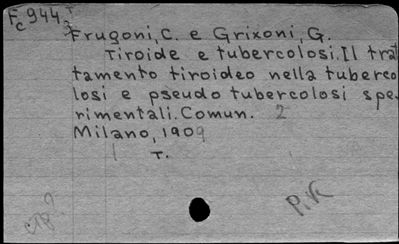 Fc944.
Frugoni, C. e Grixoni, G.
Tiroide e tubercolosi. Il trat
tamento tiroideo nella tuberco
losi e pseudo tubercolosi spe-
rimentali. Comun. 2
Milano, 1909
1 T.
P.K